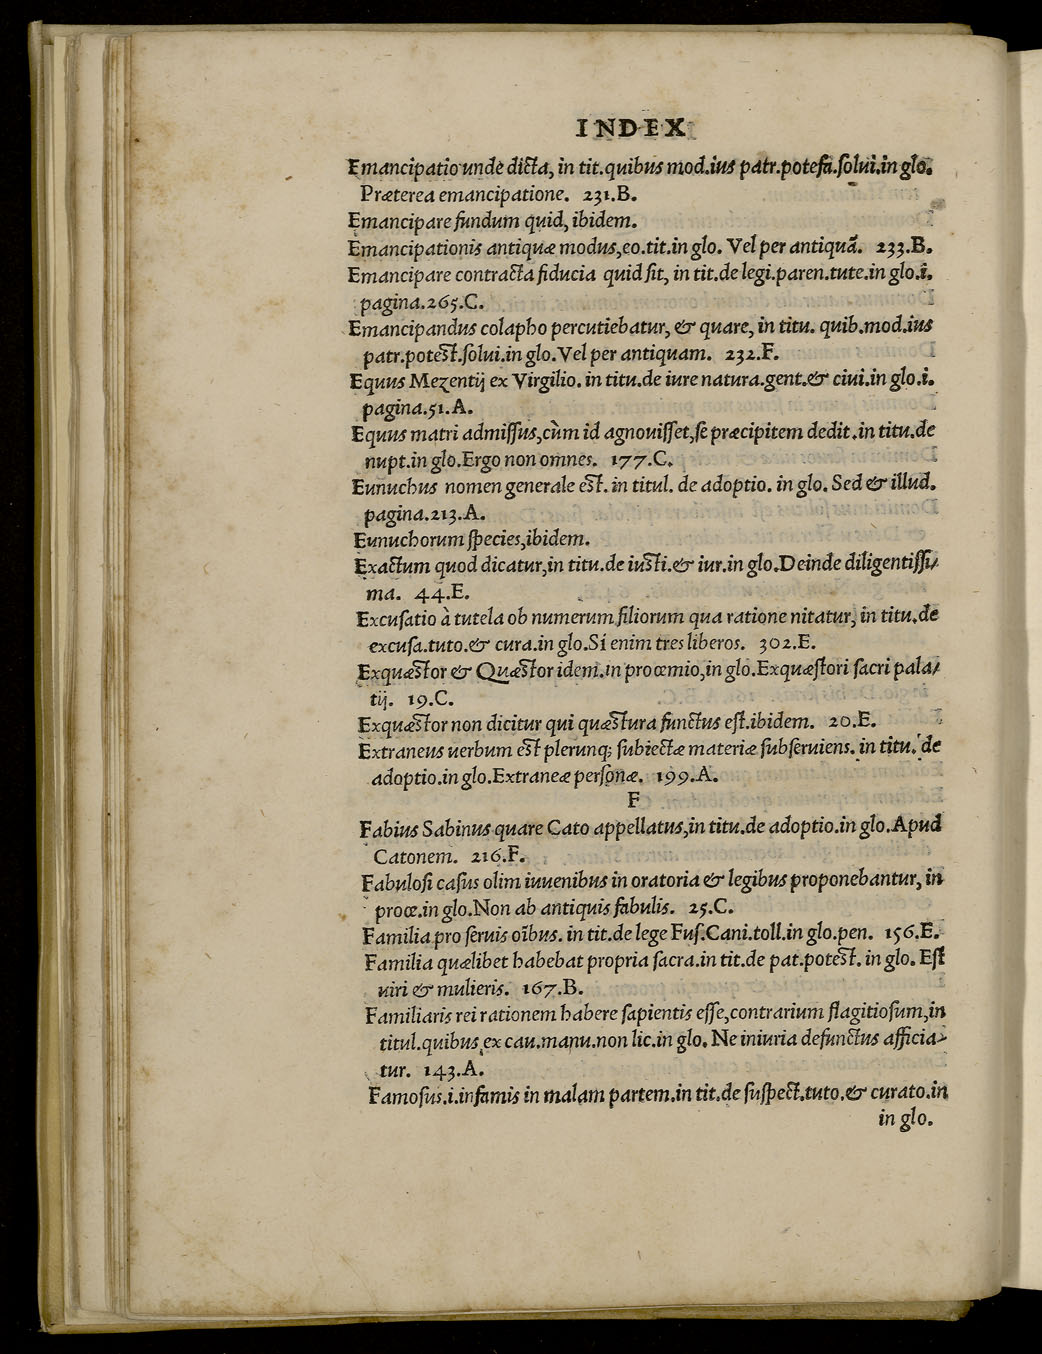 INDEX
Emancipatio unde dicta, in tit.quibus mod.ius patr.potesa.ſolui.in glo.
Præterea emancipatione. 231.B.
Emancipare fundum quid, ibidem.
Emancipationis antiquæ modus,eo.tit.in glo. Vel per antiquā. 233.B.
Emancipare contracta fiducia quid ſit, in tit.de legi.paren.tute.in glo.i.
pagina.265.C.
Emancipandus colapho percutiebatur, & quare, in titu. quib.mod.ius
patr.poteſt.ſolui.in glo.Vel per antiquam. 232.F.
Equus Mezentij ex Virgilio. in titu.de iure natura.gent.& ciui.in glo.i.
pagina.51.A.
Equus matri admiſſus,cùm id agnouiſſet,ſe præcipitem dedit.in titu.de
nupt.in glo.Ergo non omnes. 177.C.
Eunuchus nomen generale eſt. in titul. de adoptio. in glo. Sed & illud.
pagina.213.A.
Eunuchorum ſpecies,ibidem.
Exactum quod dicatur,in titu.de iuſti.& iur.in glo.Deinde diligentiſſi/
ma. 44.E.
Excuſatio à tutela ob numerum filiorum qua ratione nitatur, in titu.de
excuſa.tuto.& cura.in glo.Si enim tres liberos. 302.E.
Exquæſtor & Quæſtor idem.in proœmio,in glo.Exquæſtori ſacri pala/
tij. 19.C.
Exquæſtor non dicitur qui quæſtura functus eſt.ibidem. 20.E.
Extraneus uerbum eſt plerunq; ſubiectæ materiæ ſubſeruiens. in titu. de
adoptio.in glo.Extraneæ perſonæ. 199.A.
F
Fabius Sabinus quare Cato appellatus,in titu.de adoptio.in glo.Apud
Catonem. 216.F.
Fabuloſi caſus olim iuuenibus in oratoria & legibus proponebantur, in
proœ.in glo.Non ab antiquis fabulis. 25.C.
Familia pro ſeruis oībus. in tit.de lege Fuſ.Cani.toll.in glo.pen. 156.E.
Familia quælibet habebat propria ſacra.in tit.de pat.poteſt. in glo. Eſt
uiri & mulieris. 167.B.
Familiaris rei rationem habere ſapientis eſſe,contrarium flagitioſum,in
titul.quibus ex cau.manu.non lic.in glo. Ne iniuria defunctus afficia-
tur. 143.A.
Famoſus.i.infamis in malam partem.in tit.de ſuſpect.tuto.& curato.in
in glo.